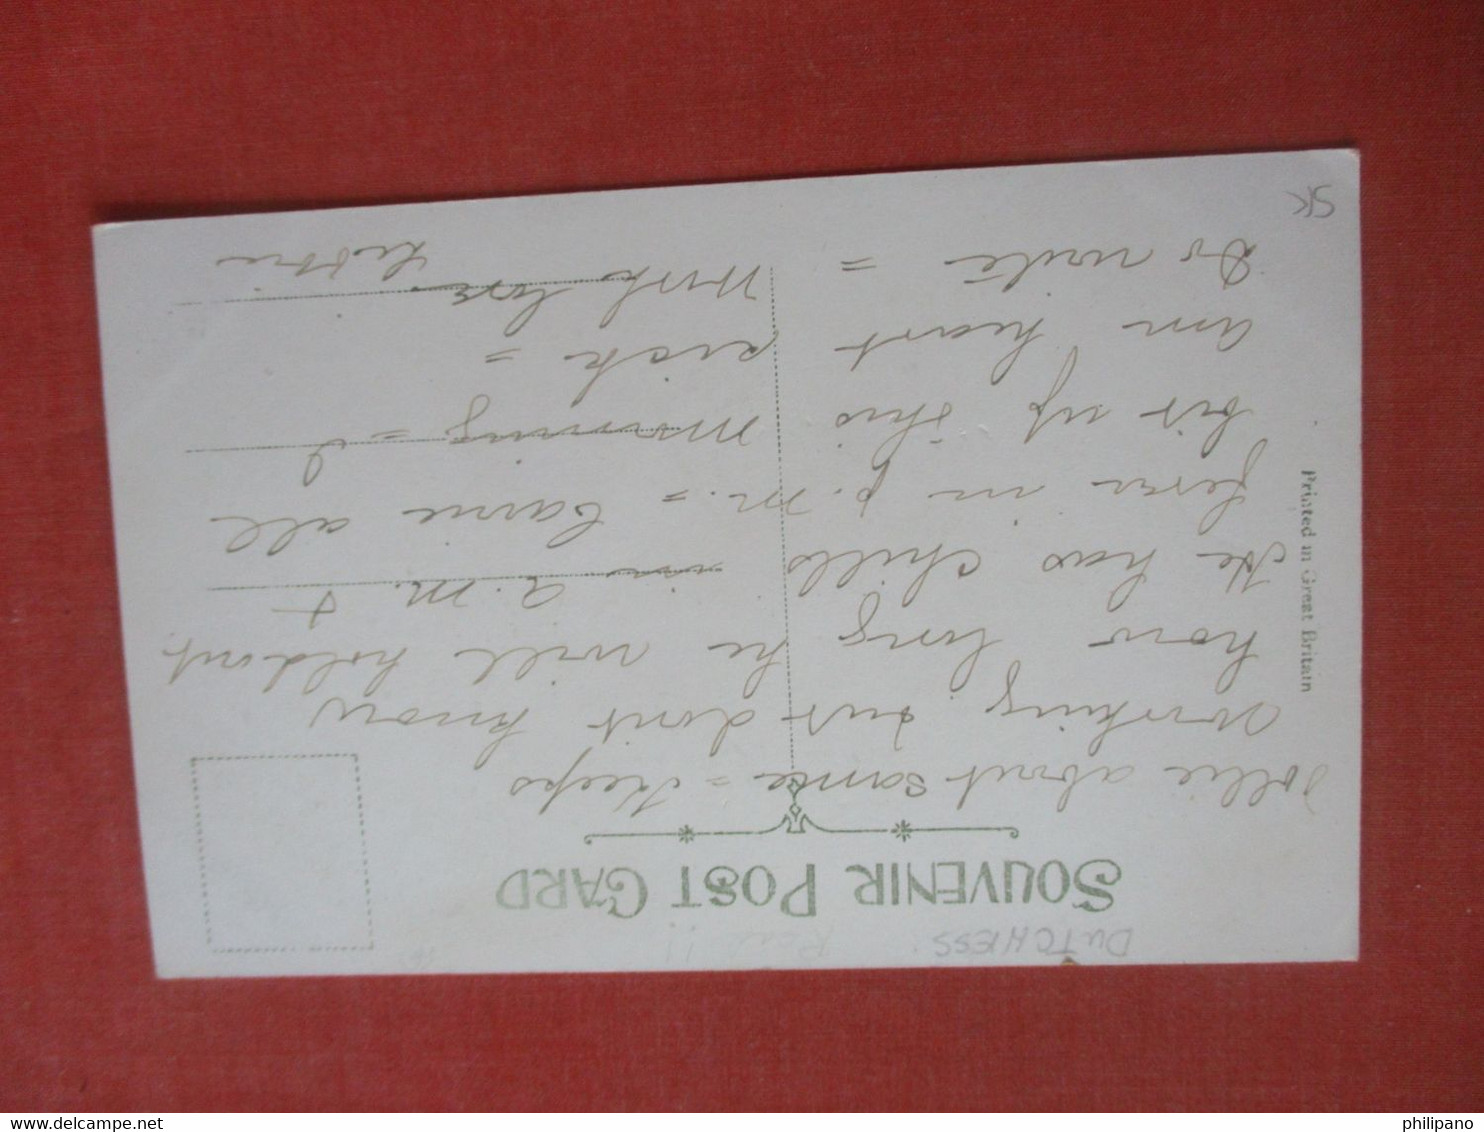 DUTCHESS.
SOUVENIR POST CARD
Tollie about same = Keeps
working, but don't know
how long he will hold out
He has chills in a.m. +
fever in p.m. = Carrie all
bit up this morning = I
am heart sick =
Do write = Much love
Lettie
Printed in Great Britain
SK
delcampe.net
philipano